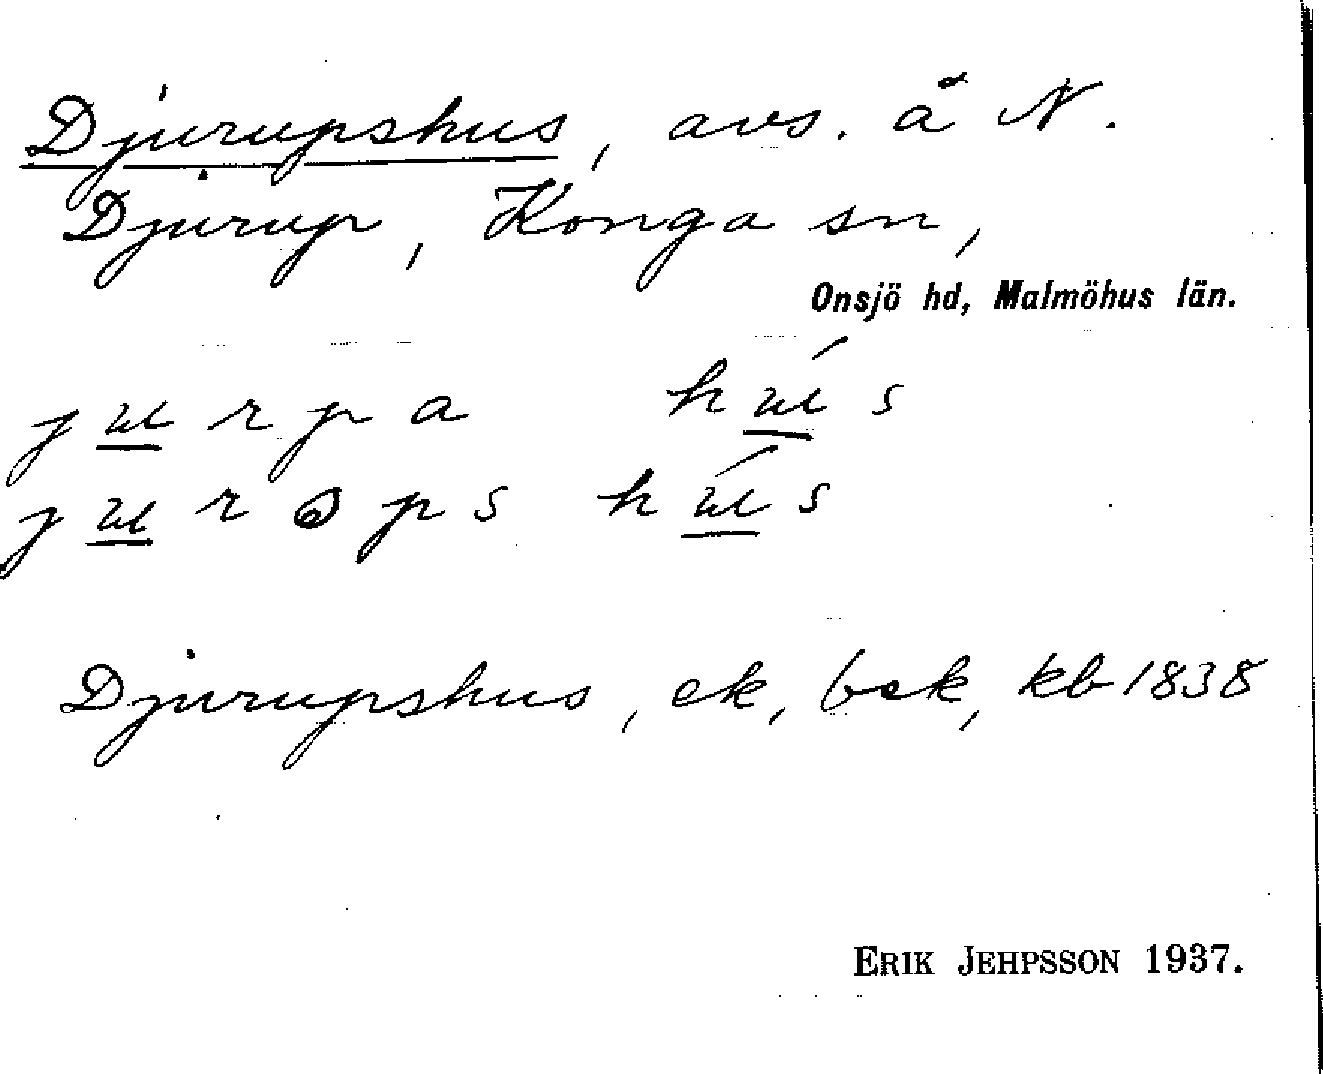 Djurupshus, avs. å N.
Djurup, Konga sn,
Onsjö hd, Malmöhus län.
j u r p a hú s
j u r ə p s h ú s
Djurupshus, ek, bek, kb 1838
ERIK JEHPSSON 1937.